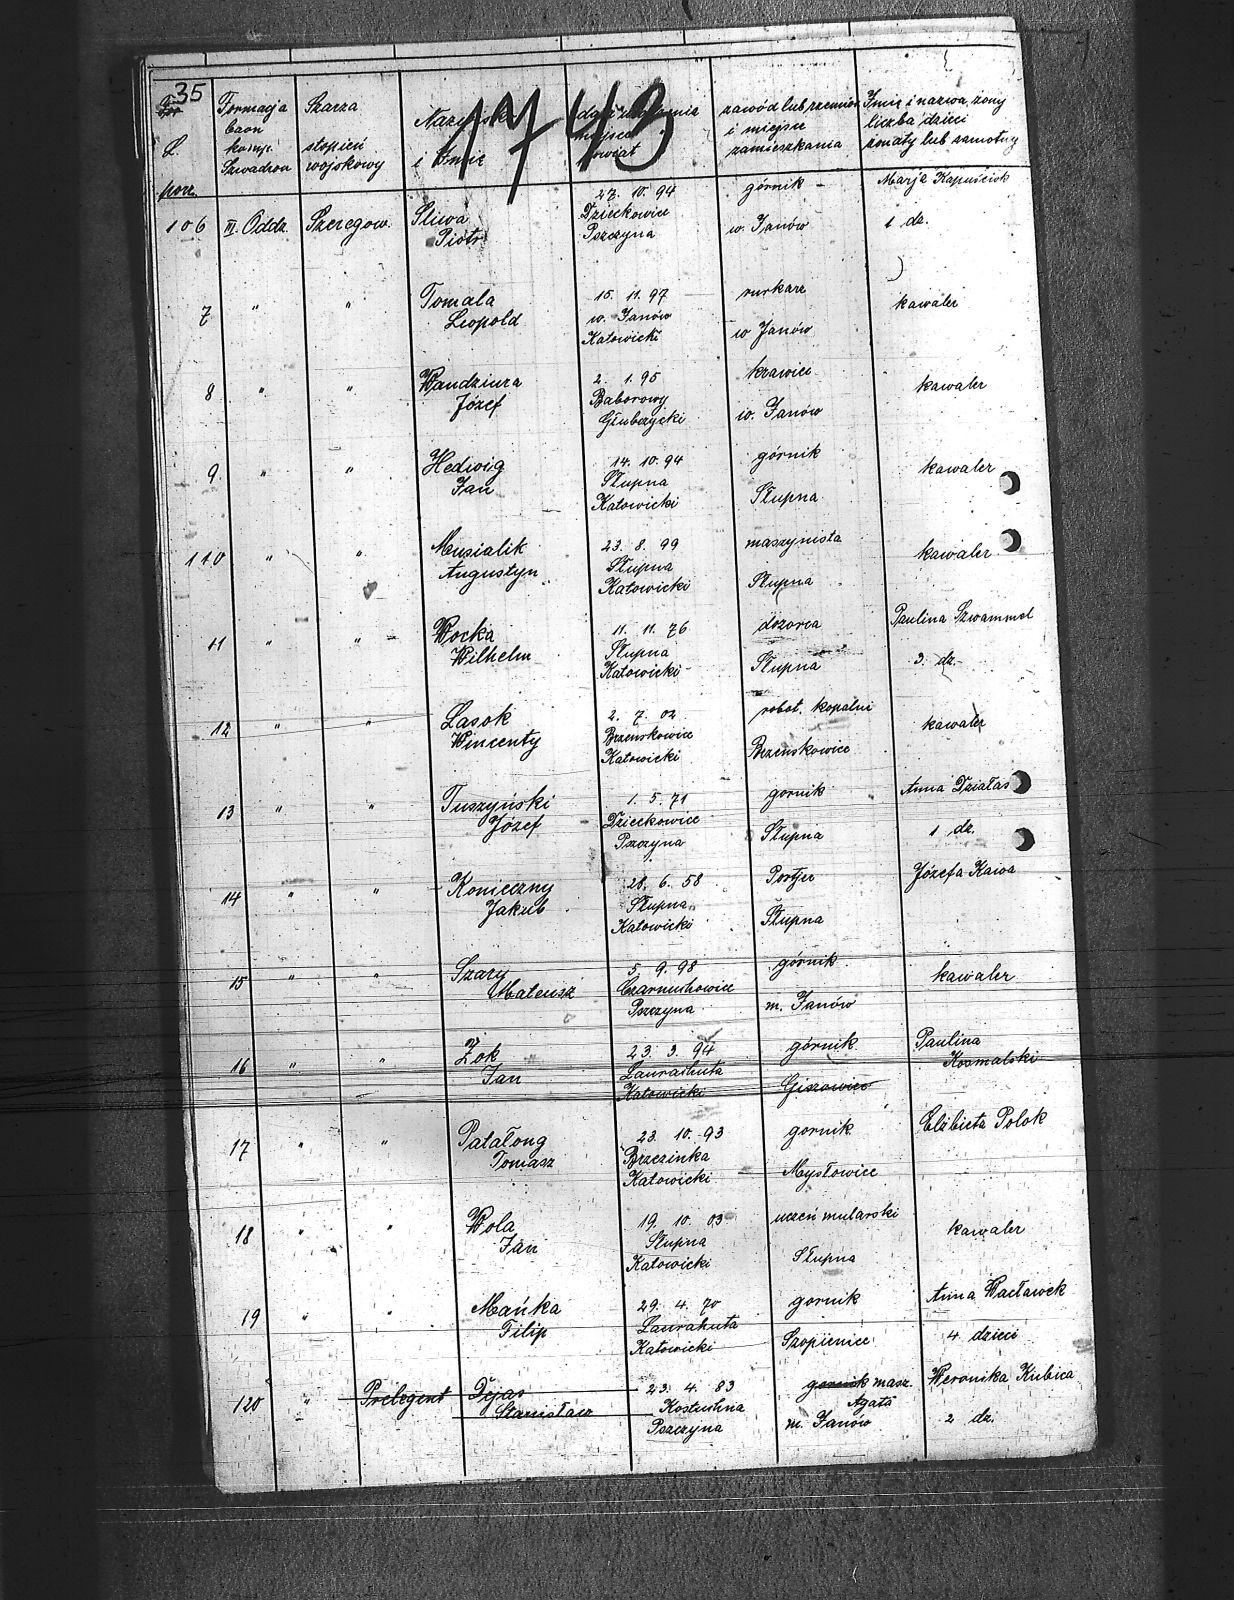 35
1743
L. porz.
Formacja
baon
komp.
Szwadron
Szarża
stopień
wojskowy
Nazwisko
i Imię
data urodzenia
miejsce
powiat
zawód lub rzemiosło
i miejsce
zamieszkania
Imię i nazwa żony
liczba dzieci
żonaty lub samotny
106 III. Oddz. Szeregow. Śliwa
Piotr
27. 10. 94
Dzieckowice
Pszczyna
górnik
w. Janów
Marja Kapuściok
1 dz.
7 " " Tomala
Leopold
15. 11. 97
w. Janów
Katowicki
rurkarz
w Janów
kawaler
8 " " Wandziura
Józef
2. 1. 95
Baborowy
Głubczycki
krawiec
w. Janów
kawaler
9 " " Hedwig
Jan
14. 10. 94
Słupna
Katowicki
górnik
Słupna
kawaler
110 " " Musialik
Augustyn
23. 8. 99
Słupna
Katowicki
maszynista
Słupna
kawaler
11 " " Wocka
Wilhelm
11. 11. 76
Słupna
Katowicki
dozorca
Słupna
Paulina Szwammel
3. dz.
12 " " Lasok
Wincenty
2. 7. 02
Brzenskowice
Katowicki
robot. kopalni
Brzenskowice
kawaler
13 " " Tuszyński
Józef
1. 5. 71
Dzieckowice
Pszczyna
gornik
Słupna
Anna Działas
1 dz.
14 " " Konieczny
Jakub
28. 6. 58
Słupna
Katowicki
Portjer
Słupna
Józefa Kawa
15 " " Szary
Mateusz
5. 9. 98
Czarnuchowice
Pszczyna
górnik
m. Janów
kawaler
16 " " Żok
Jan
23. 3. 94
Laurahuta
Katowicki
górnik
Giszowiec
Paulina
Kosmalski
17 " " Patałong
Tomasz
23. 10. 93
Brzezinka
Katowicki
gornik
Mysłowice
Elżbieta Polok
18 " " Wola
Jan
19. 10. 03
Słupna
Katowicki
uczeń mularski
Słupna
kawaler
19 " " Mańka
Filip
29. 4. 70
Laurahuta
Katowicki
gornik
Szopienice
Anna Wacławek
4 dzieci
120 " Prelegent Dyas
Stanisław
23. 4. 83
Kostuchna
Pszczyna
gornik masz.
Agata
m. Janów
Weronika Kubica
2 dz.